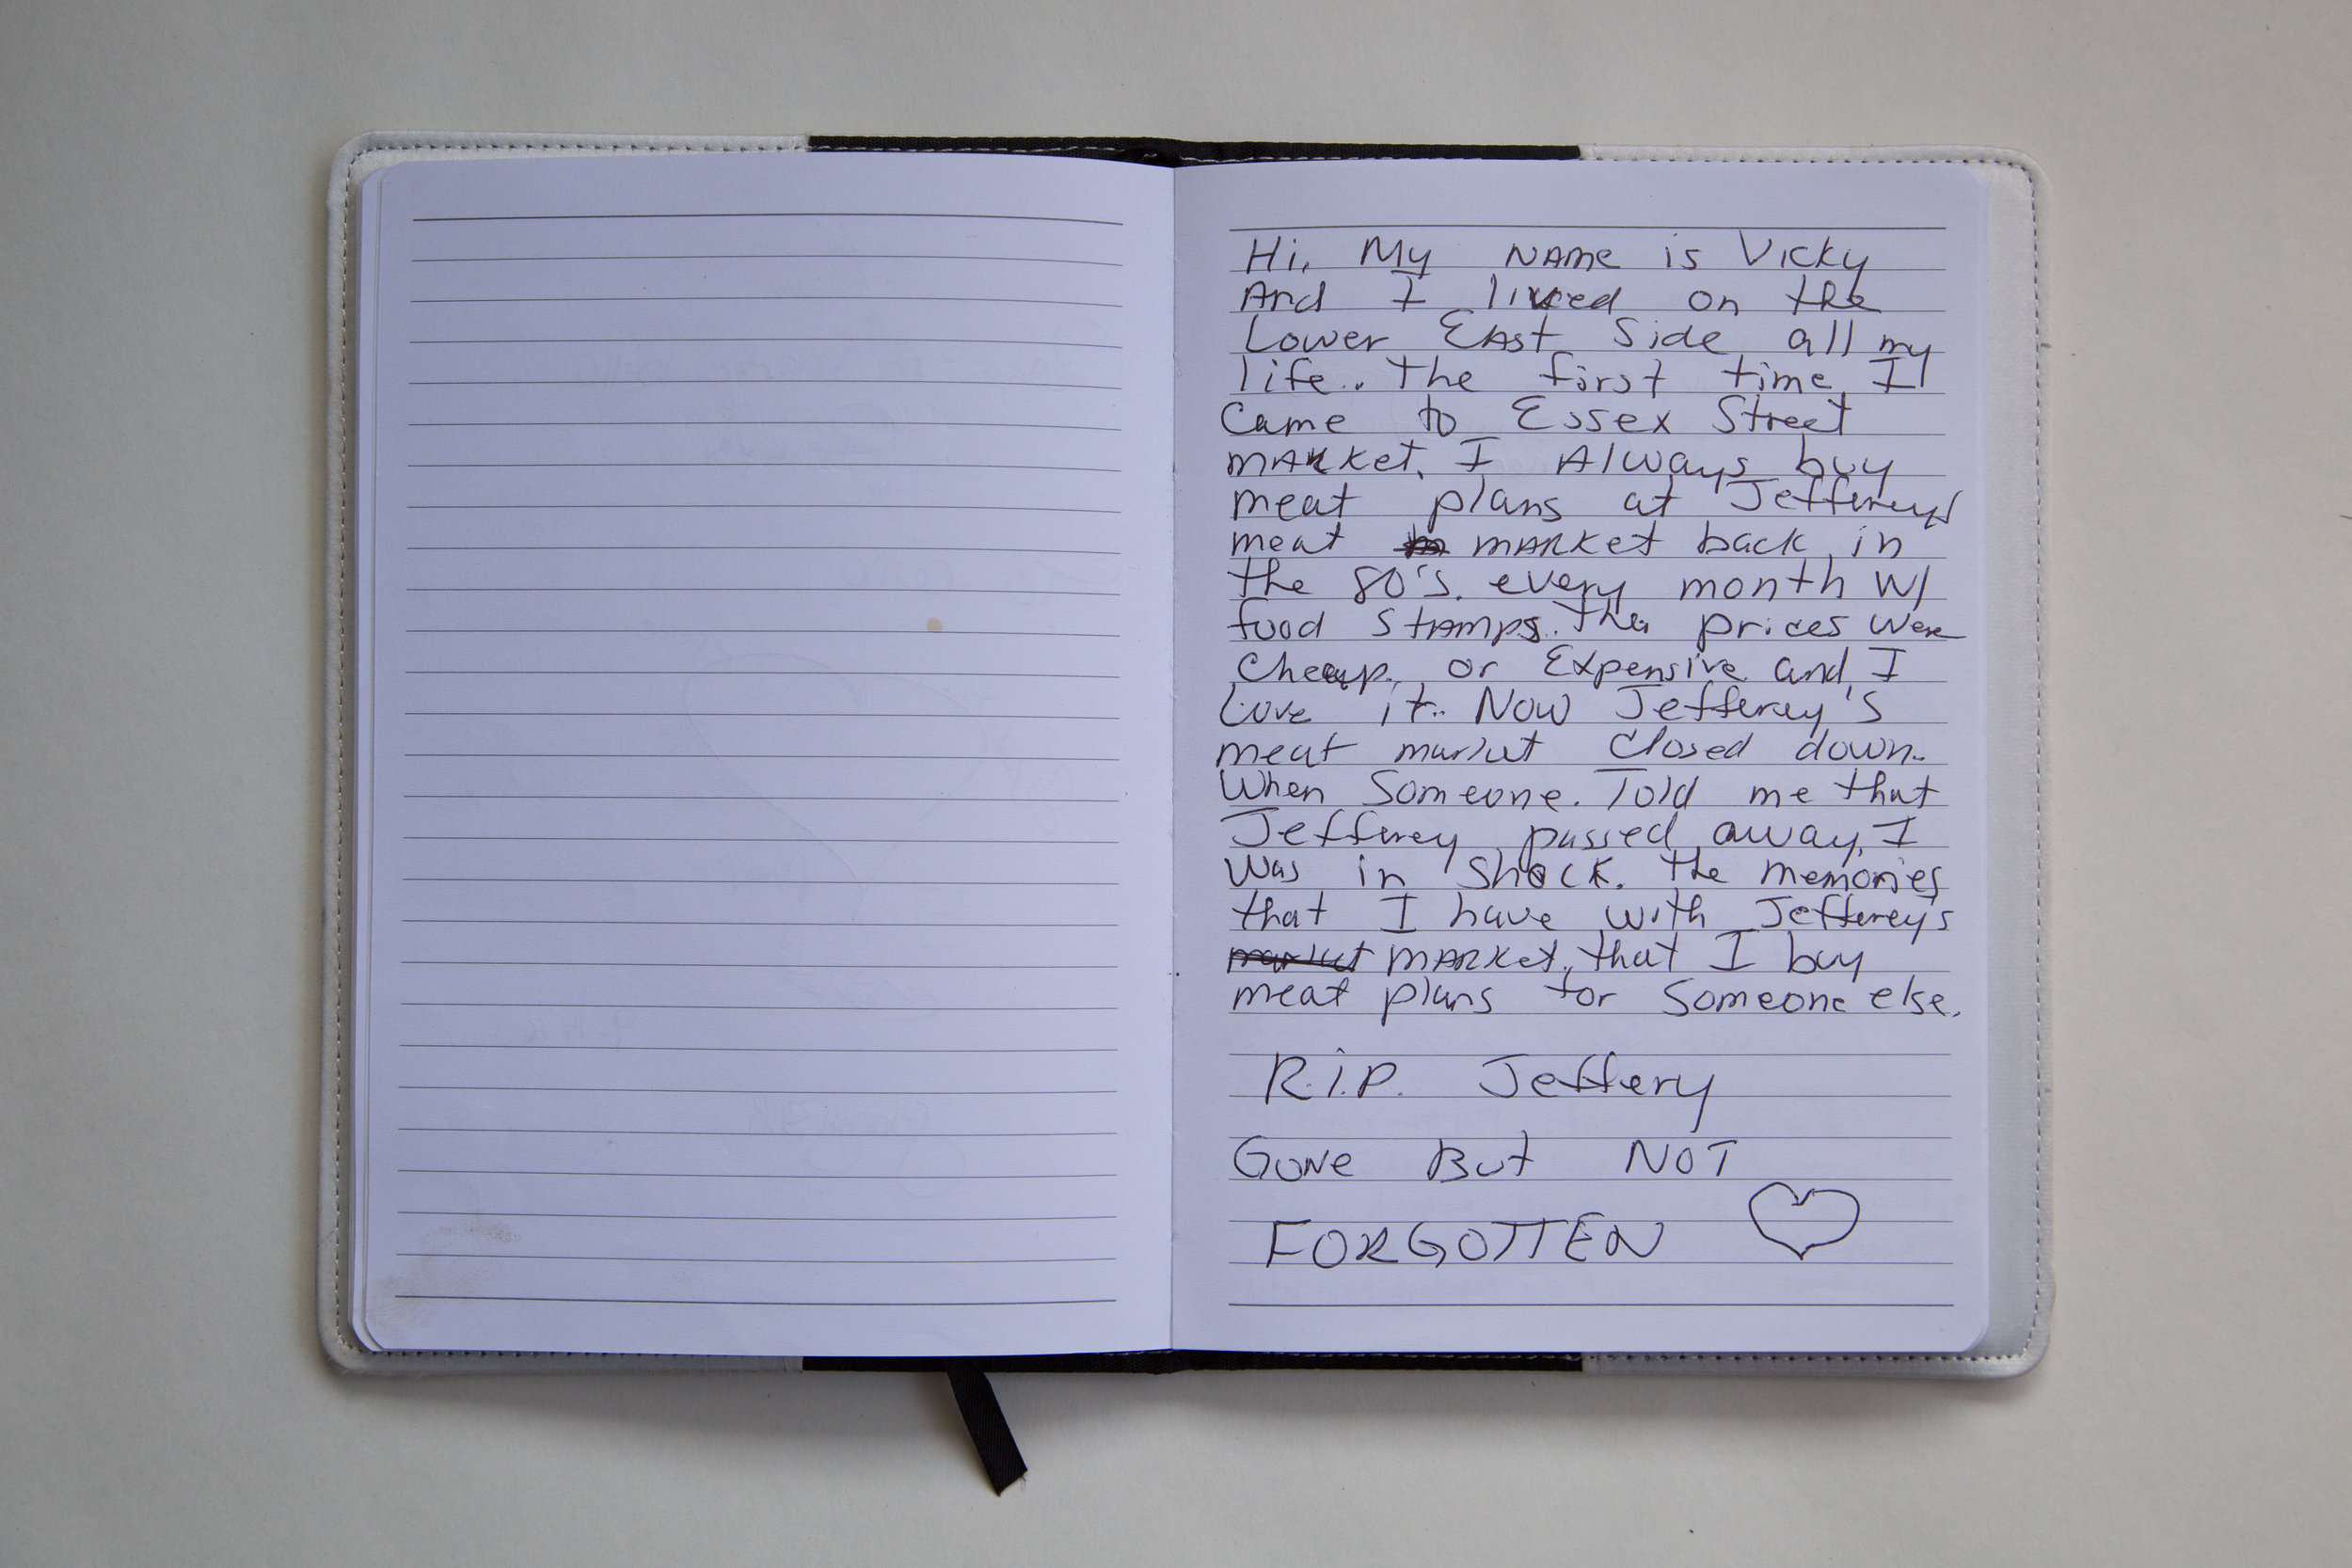 Hi, My NAme is Vicky
And I lived on the
Lower EAst Side all my
life.. the first time I
Came to Essex Street
mARket, I Always buy
meat plans at Jefferey's
meat mARket back in
the 80's. every month w/
food StAmps. The prices were
Cheap, or Expensive and I
Love it.. Now Jefferey's
meat market Closed down.
When Someone. Told me that
Jefferey passed away, I
Was in Shock. the memories
that I have with Jefferey's
market mARket, that I buy
meat plans for Someone else.
R.I.P. Jeffery
GoNe But NOT
FORGOTTEN